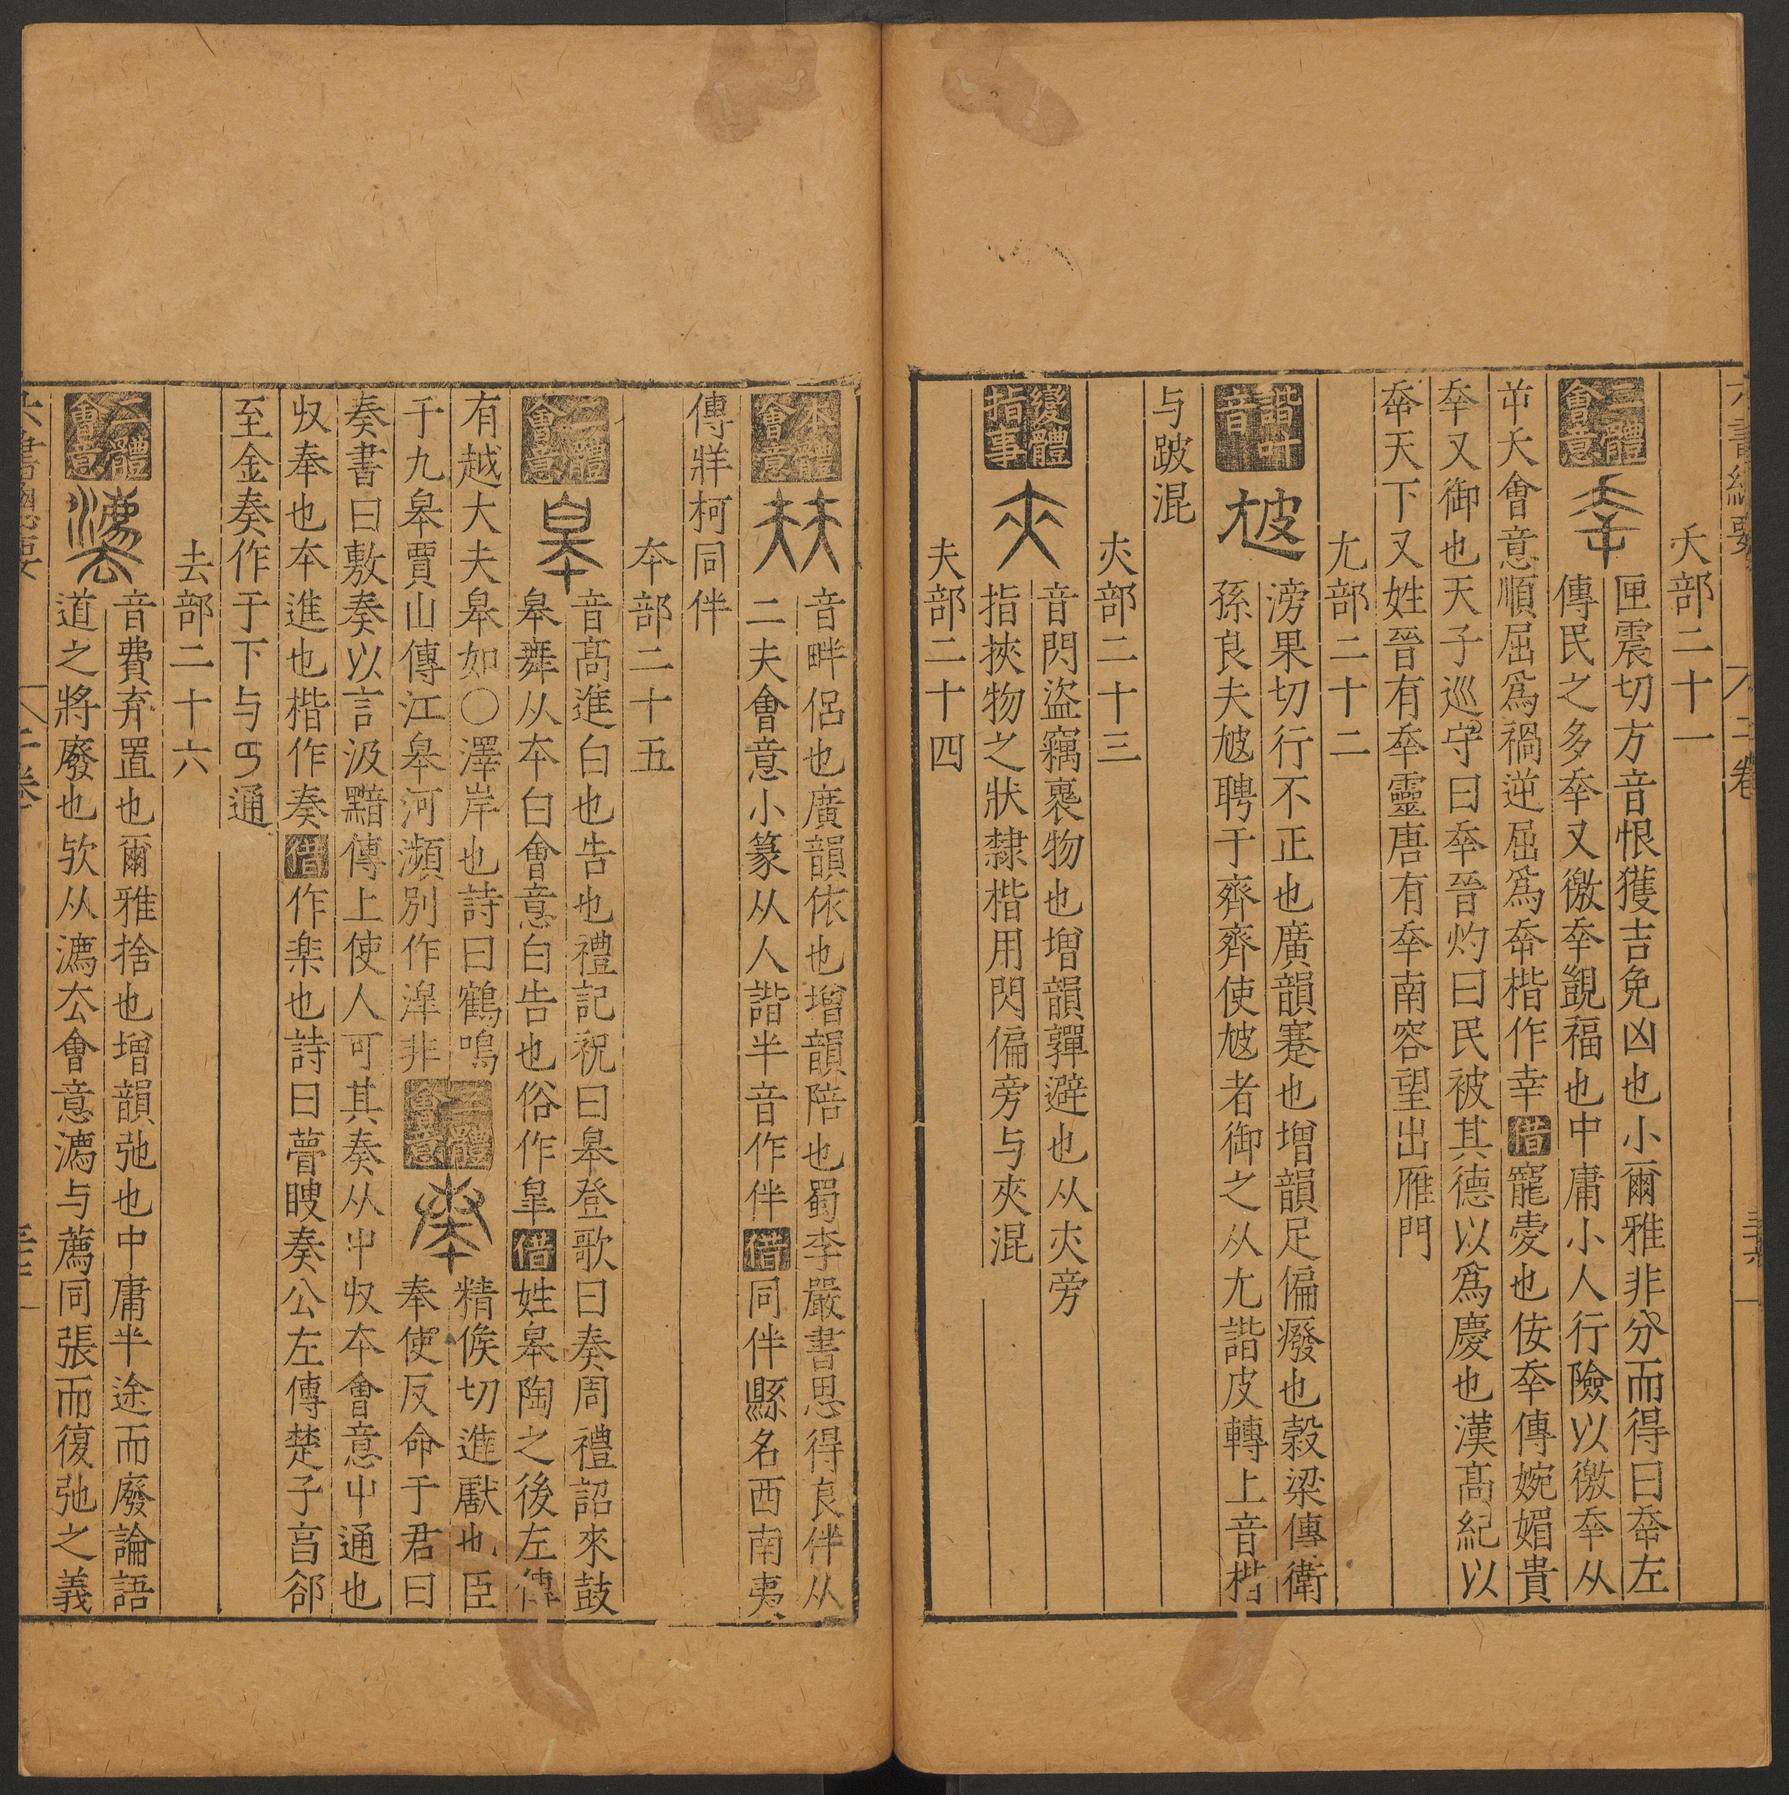 夭部二十一
二體會意
匣震切方音恨獲吉免凶也小爾雅非分而得曰㚔左
傳民之多㚔又徼㚔覬福也中庸小人行險以徼㚔从
屰夭會意順屈爲禍逆屈爲㚔楷作幸借寵愛也佞㚔傳婉媚貴
㚔又御也天子巡守曰㚔晉灼曰民被其德以爲慶也漢高紀以
㚔天下又姓晉有㚔靈唐有㚔南容望出雁門
尢部二十二
諧叶音
㝿
滂果切行不正也廣韻蹇也增韻足偏癈也穀梁傳衛
孫良夫㝿聘于齊齊使㝿者御之从尢諧皮轉上音楷
与跛混
㚒部二十三
變體指事
㚒
音閃盜竊褱物也增韻彈避也从㚒旁
指挾物之狀隸楷用閃偏旁与夾混
夫部二十四
本體會意
㚘
音畔侶也廣韻依也增韻陪也蜀李嚴書思得良伴从
二夫會意小篆从人諧半音作伴借同伴縣名西南夷
傳牂柯同伴
夲部二十五
二體會意
臯
音高進白也告也禮記祝曰皋登歌曰奏周禮詔來鼓
皋舞从夲白會意白告也俗作皐借姓皋陶之後左傳
有越大夫皋如〇澤岸也詩曰鶴鳴
于九皋賈山傳江皋河瀕別作滜非
三體會意
精候切進厭也臣
奉使反命于君曰
奏書曰敷奏以言汲黯傳上使人可其奏从屮収夲會意屮通也
収奉也夲進也楷作奏借作樂也詩曰瞢瞍奏公左傳楚子言郤
至金奏作于下与丂通
去部二十六
二體會意
音費弃置也爾雅捨也增韻弛也中庸半途而廢論語
道之將廢也欤从灋厺會意灋与薦同張而復弛之義